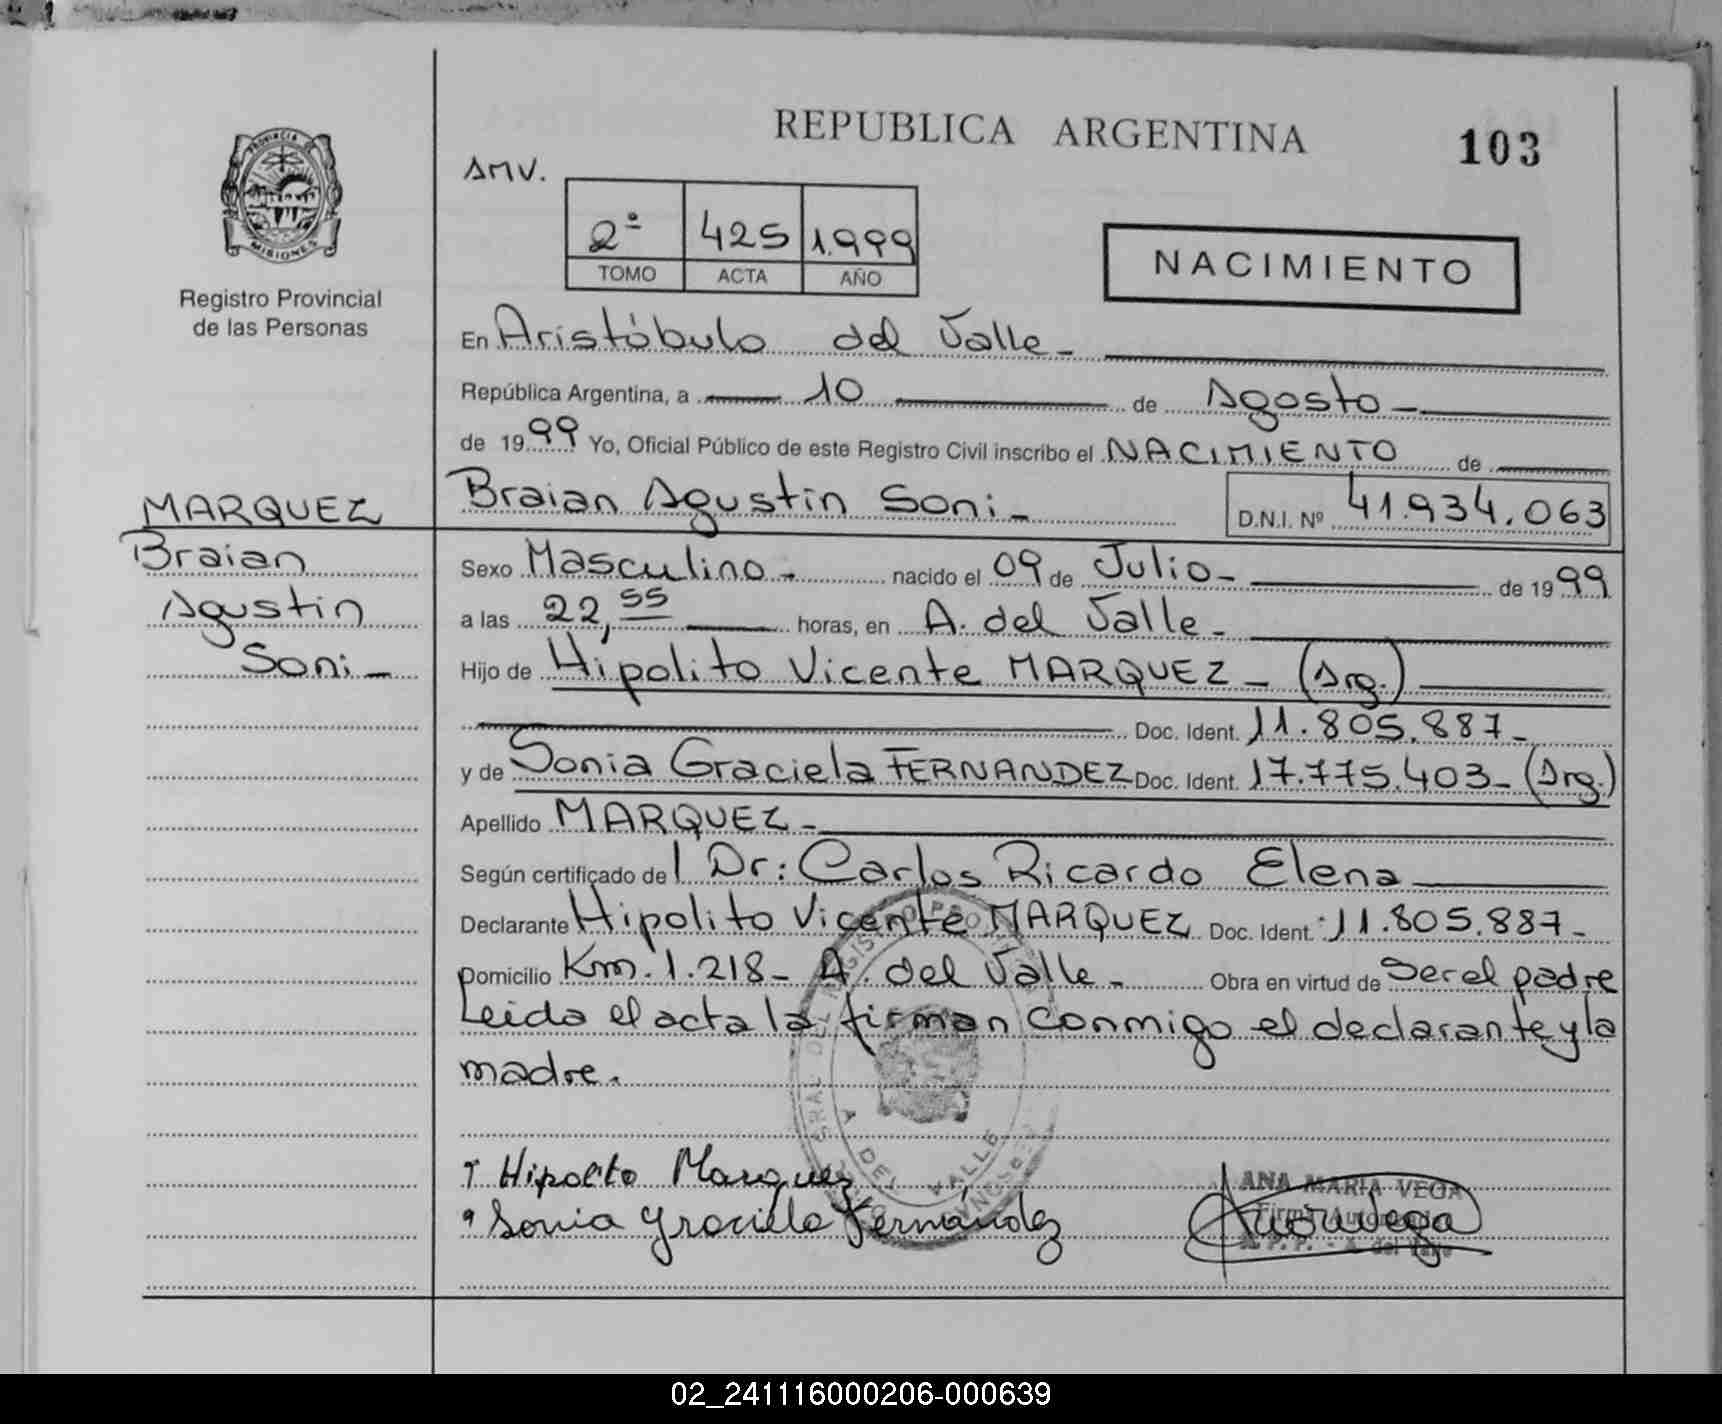 REPUBLICA ARGENTINA
103
AMV.
2º 425 1.999
TOMO ACTA AÑO
NACIMIENTO
PROVINCIA DE
MISIONES
Registro Provincial
de las Personas
En Aristóbulo del Valle-
República Argentina, a 10 de Agosto-
de 1999 Yo, Oficial Público de este Registro Civil inscribo el NACIMIENTO de
Braian Agustin Soni- D.N.I. Nº 41.934.063
MARQUEZ
Braian
Agustin
Soni-
Sexo Masculino- nacido el 09 de Julio- de 1999
a las 22,55 horas, en A. del Valle-
Hijo de Hipolito Vicente MARQUEZ- (Arg.)
Doc. Ident. 11.805.887-
y de Sonia Graciela FERNANDEZ Doc. Ident. 17.775.403- (Arg.)
Apellido MARQUEZ-
Según certificado del Dr: Carlos Ricardo Elena
Declarante Hipolito Vicente MARQUEZ Doc. Ident. 11.805.887-
Domicilio Km. 1.218- A. del Valle- Obra en virtud de ser el padre
Leida el acta la firman conmigo el declarante y la
madre.
Hipolito Marquez
Sonia Graciela Fernández
ANA MARIA VEGA
A. del Valle
02_241116000206-000639